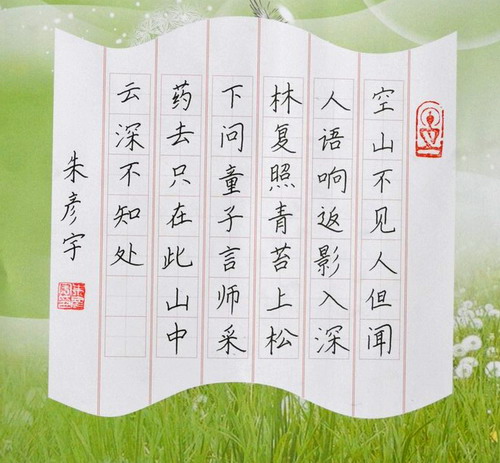 空山不见人但闻
人语响返影入深
林复照青苔上松
下问童子言师采
药去只在此山中
云深不知处
朱彦宇